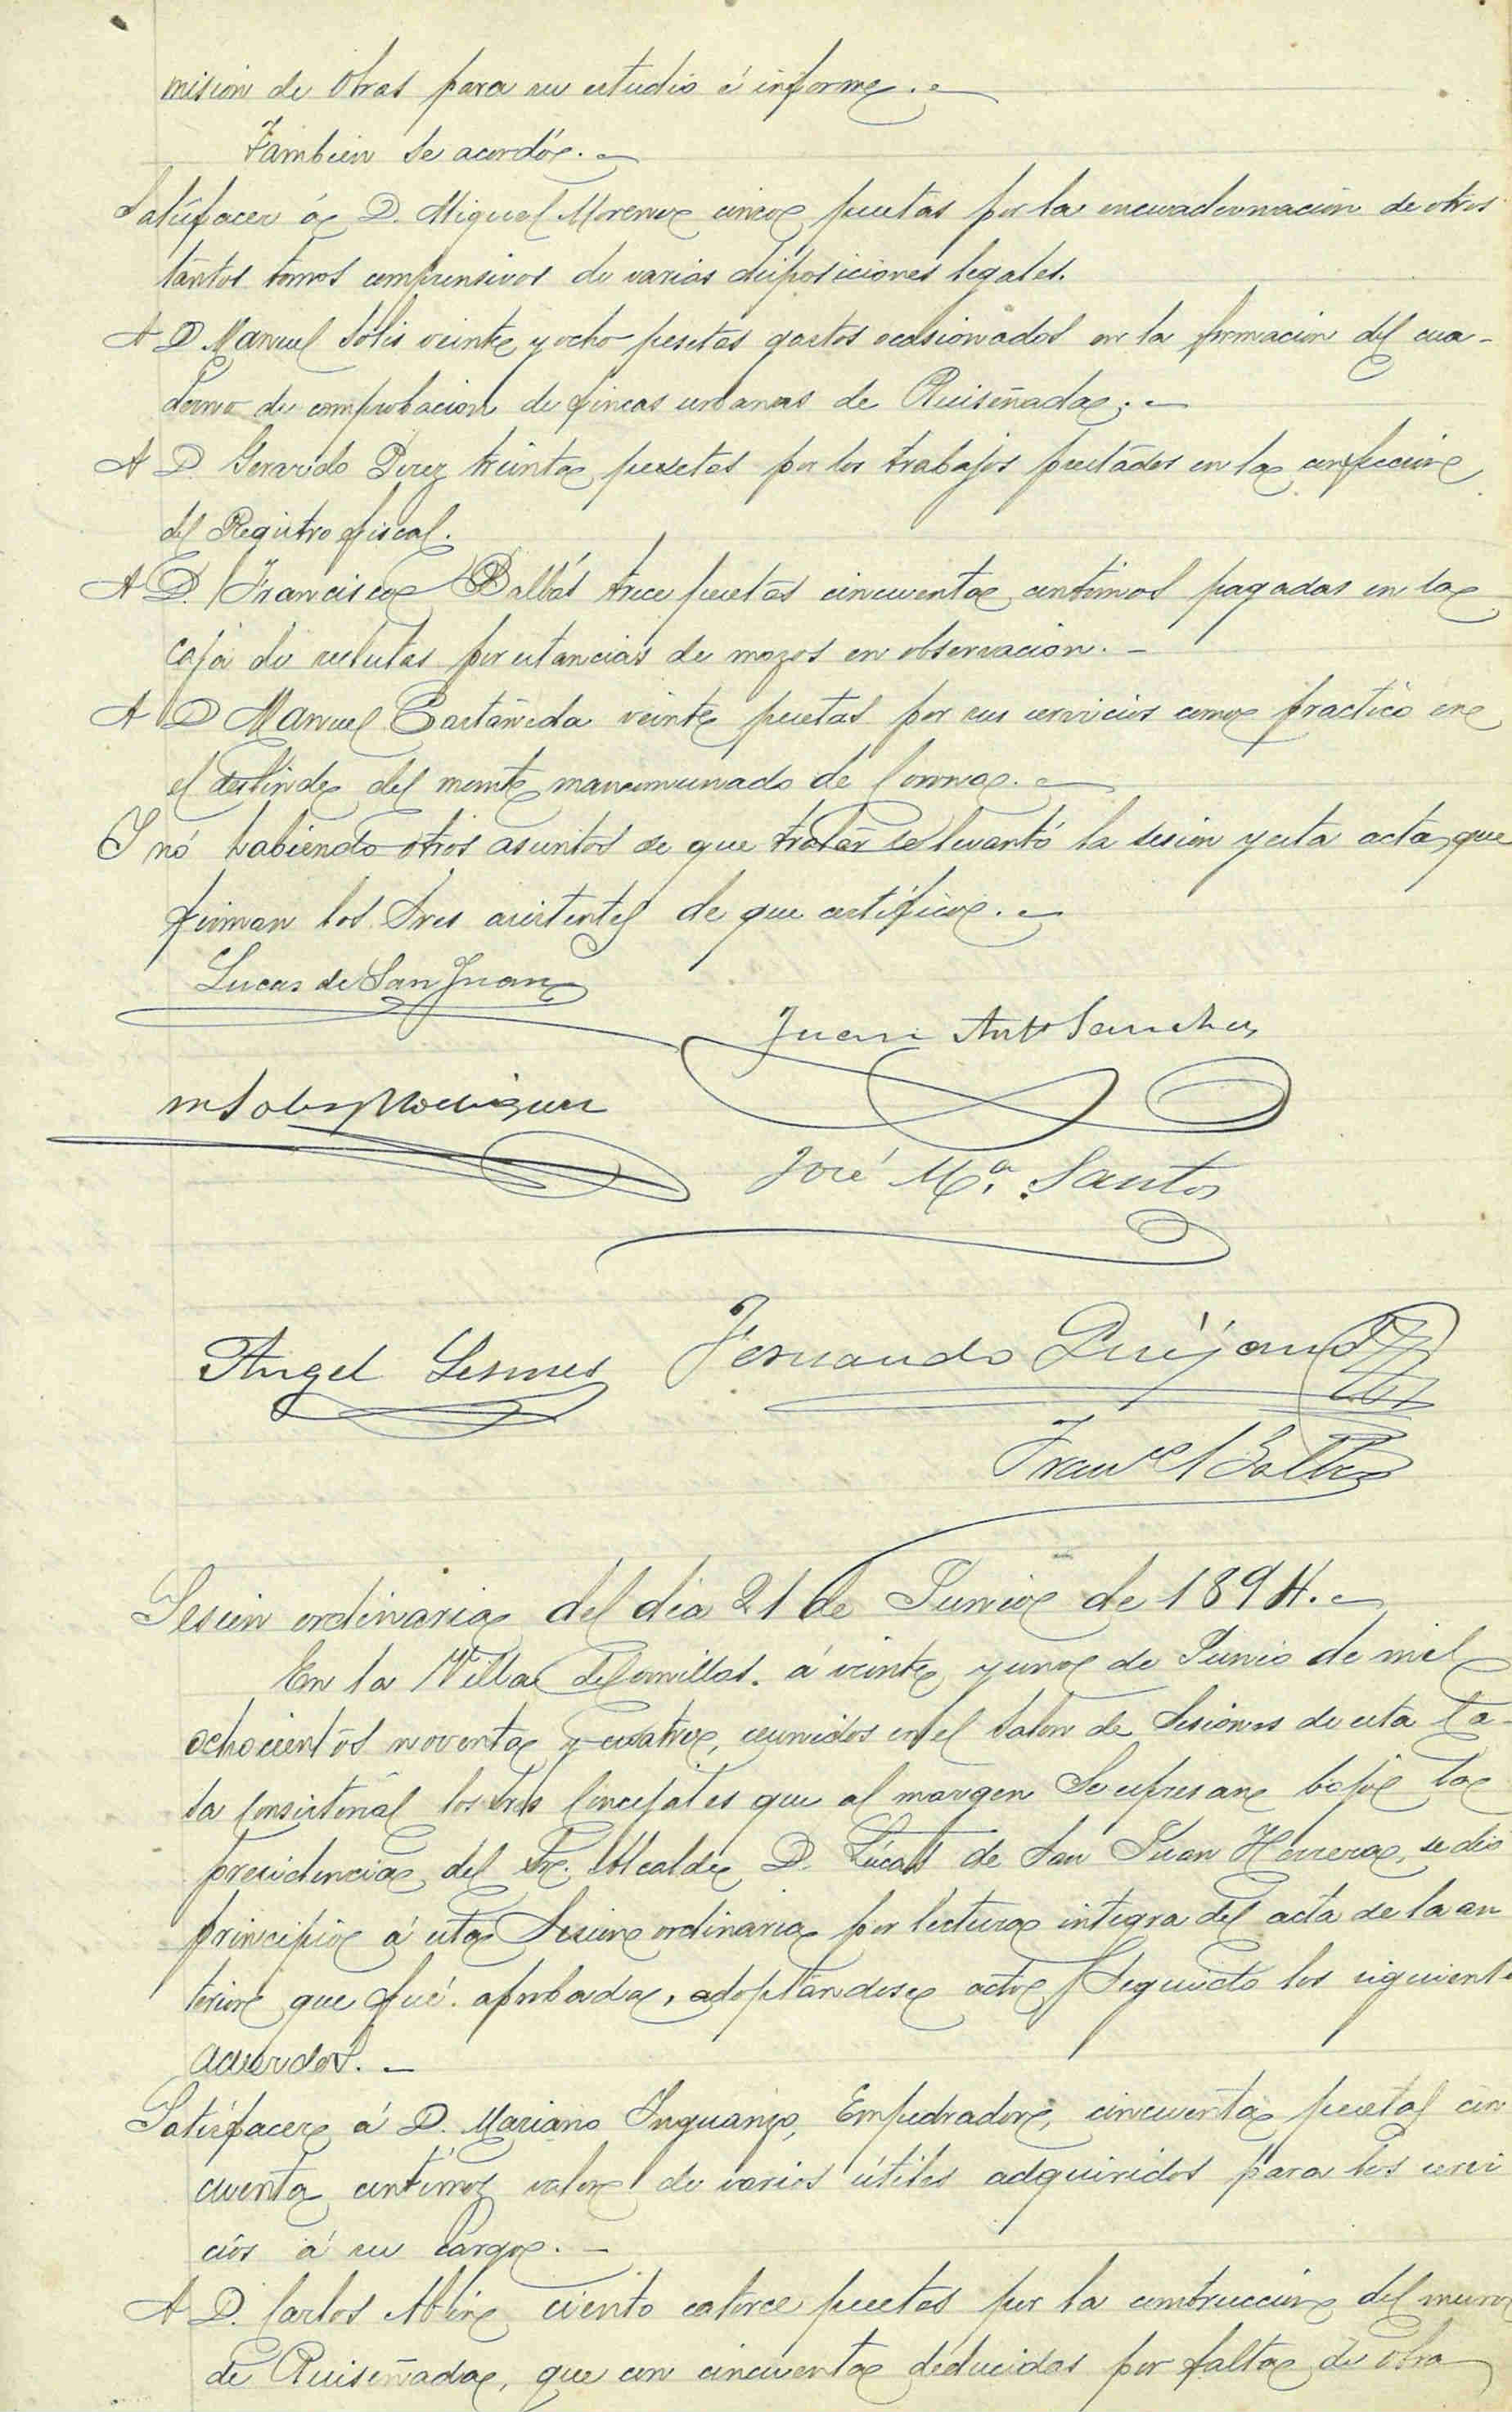 misión de Obras para su estudio é informe.
Tambien se acordó.
Satisfacer á D. Miguel Moreno cinco pesetas por la encuadernación de otros
tantos tomos comprensivos de varias disposiciones legales.
A D. Manuel Solis veinte y ocho pesetas gastos ocasionados en la formación del cua-
derno de comprobación de fincas urbanas de Ruiseñada.
A D. Gerardo Perez treinta pesetas por los trabajos prestados en la confección
del Registro fiscal.
A D. Francisco Balbás trece pesetas cincuenta centimos pagadas en la
caja de reclutas por estancias de mozos en observación.
A D Manuel Castañeda veinte pesetas por sus servicios como practico en
el deslinde del monte mancomunado de Corona.
Y nó habiendo otros asuntos de que tratar se levantó la sesión y esta acta que
firman los Sres asistentes de que certifico.
Lucas de San Juan
Juan Antº Sanchez
M Solis Rodriguez
José Mª. Santos
Angel Lesmes Fernando Quijano
Francº Balbás
Sesión ordinaria del dia 21 de Junio de 1894.
En la Villa de Comillas á veinte y uno de Junio de mil
ochocientos noventa y cuatro, reunidos en el salon de Sesiones de esta Ca-
sa Consistorial los Sres Concejales que al margen se expresan bajo la
presidencia del Sr. Alcalde D. Lúcas de San Juan Herrera, se dió
principio á esta Sesion ordinaria por lectura integra del acta de la an
terior que fué aprobada, adoptandose acto seguido los siguientes
acuerdos.
Satisfacer á D. Mariano Inguanzo, Empedrador, cincuenta pesetas cin
cuenta centimos valor de varios útiles adquiridos para los servi
cios á su cargo.
A D. Carlos Abin ciento catorce pesetas por la construcción del muro
de Ruiseñada, que con cincuenta deducidas por falta de obra